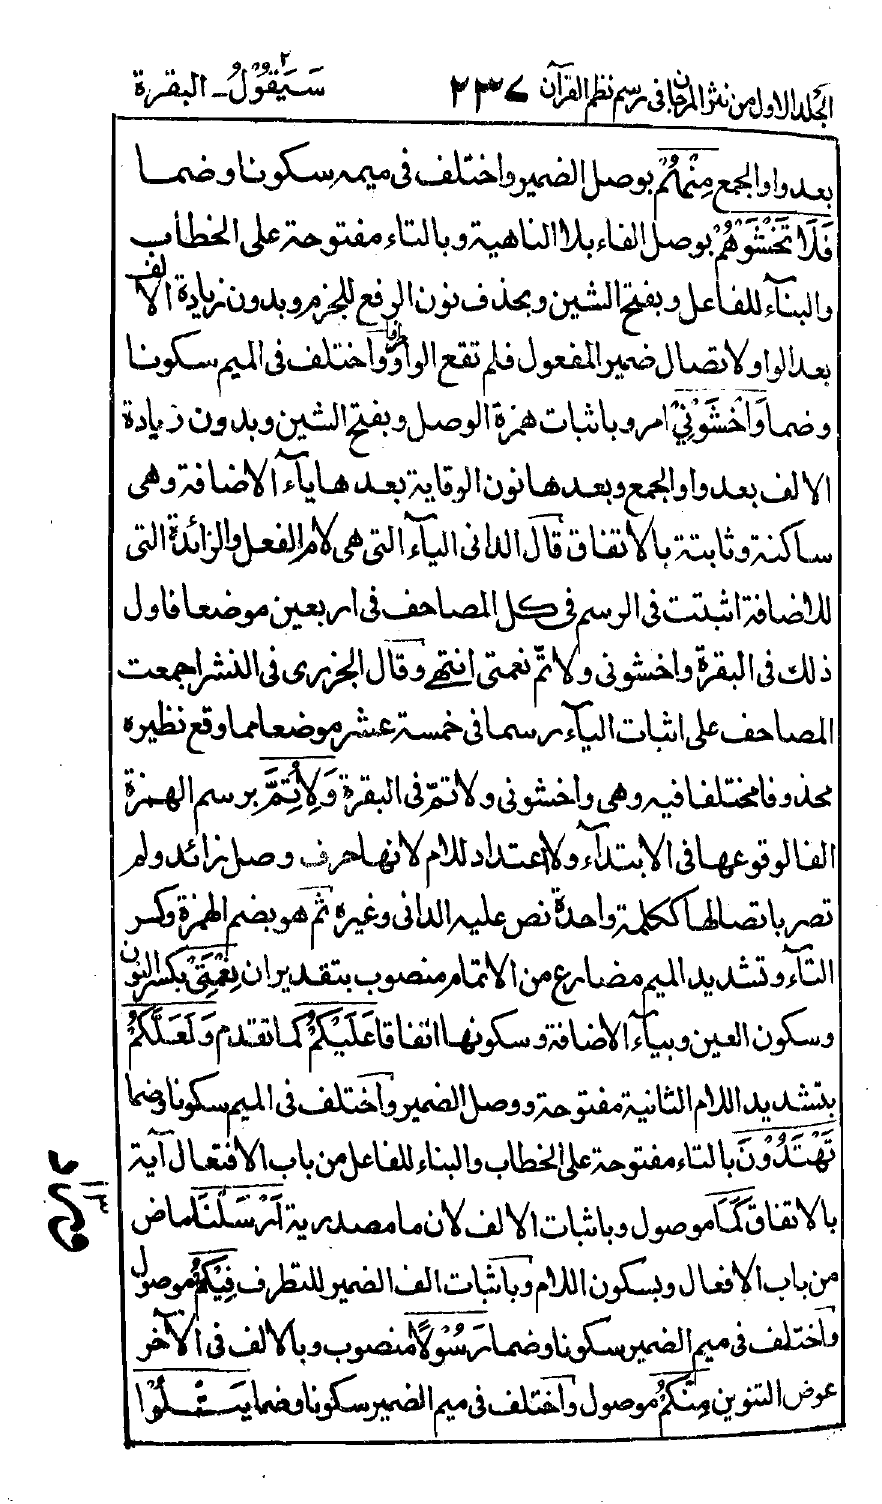 الجلد الاول من نثر المرجان في رسم نظم القرآن ٢٣٧ سَيَقُوْلُ ٢ ـ البقرة
بعد واو الجمع مِنْهُمْ بوصل الضمير واختلف فى ميمه سكونا وضما
فَلَا تَخْشَوْهُمْ بوصل الفاء بلا الناهية وبالتاء مفتوحة على الخطاب
والبنآء للفاعل وبفتح الشين وبحذف نون الرفع للجزم وبدون زيادة الالف
بعد الواو لاتصال ضمير المفعول فلم تقع الواو طرفا واختلف فى الميم سكونا
وضما وَاخْشَوْنِيْ امر وباثبات همزة الوصل وبفتح الشين وبدون زيادة
الالف بعد واو الجمع وبعدها نون الوقاية بعدها يآء الاضافة وهى
ساكنة وثابتة بالاتفاق قال الدانى اليآء التى هى لام الفعل والزائدة التى
للاضافة اثبتت فى الرسم فى كل المصاحف فى اربعين موضعا فاول
ذلك فى البقرة واخشونى ولاتمّ نعمتى انتهے وقال الجزرى فى النشر اجمعت
المصاحف على اثبات اليآء رسما فى خمسة عشر موضعا مما وقع نظيره
محذوفا مختلفا فيه وهى واخشونى ولاتمّ فى البقرة وَلِاُتِمَّ برسم الهمزة
الفا لوقوعها فى الابتدآء ولا اعتداد للام لانها حرف وصل زائد ولم
تصر باتصالها ككلمة واحدة نص عليه الدانى وغيره ثم هو بضم الهمزة وكسر
التآء وتشديد الميم مضارع من الاتمام منصوب بتقدير ان نِعْمَتِيْ بكسر النون
وسكون العين وبيآء الاضافة وسكونها اتفاقا عَلَيْكُمْ كما تقدم وَلَعَلَّكُمْ
بتشديد اللام الثانية مفتوحة ووصل الضمير واختلف فى الميم سكونا وضما
تَهْتَدُوْنَ بالتاء مفتوحة على الخطاب والبناء للفاعل من باب الافتعال آية
بالاتفاق كَمَا موصول وباثبات الالف لان ما مصدرية اَرْسَلْنَا ماض
من باب الافعال وبسكون اللام وباثبات الف الضمير للتطرف فِيْكُمْ موصول
واختلف فى ميم الضمير سكونا وضما رَسُوْلًا منصوب وبالالف فى الآخر
عوض التنوين مِنْكُمْ موصول واختلف فى ميم الضمير سكونا وضما يَتْلُوْا